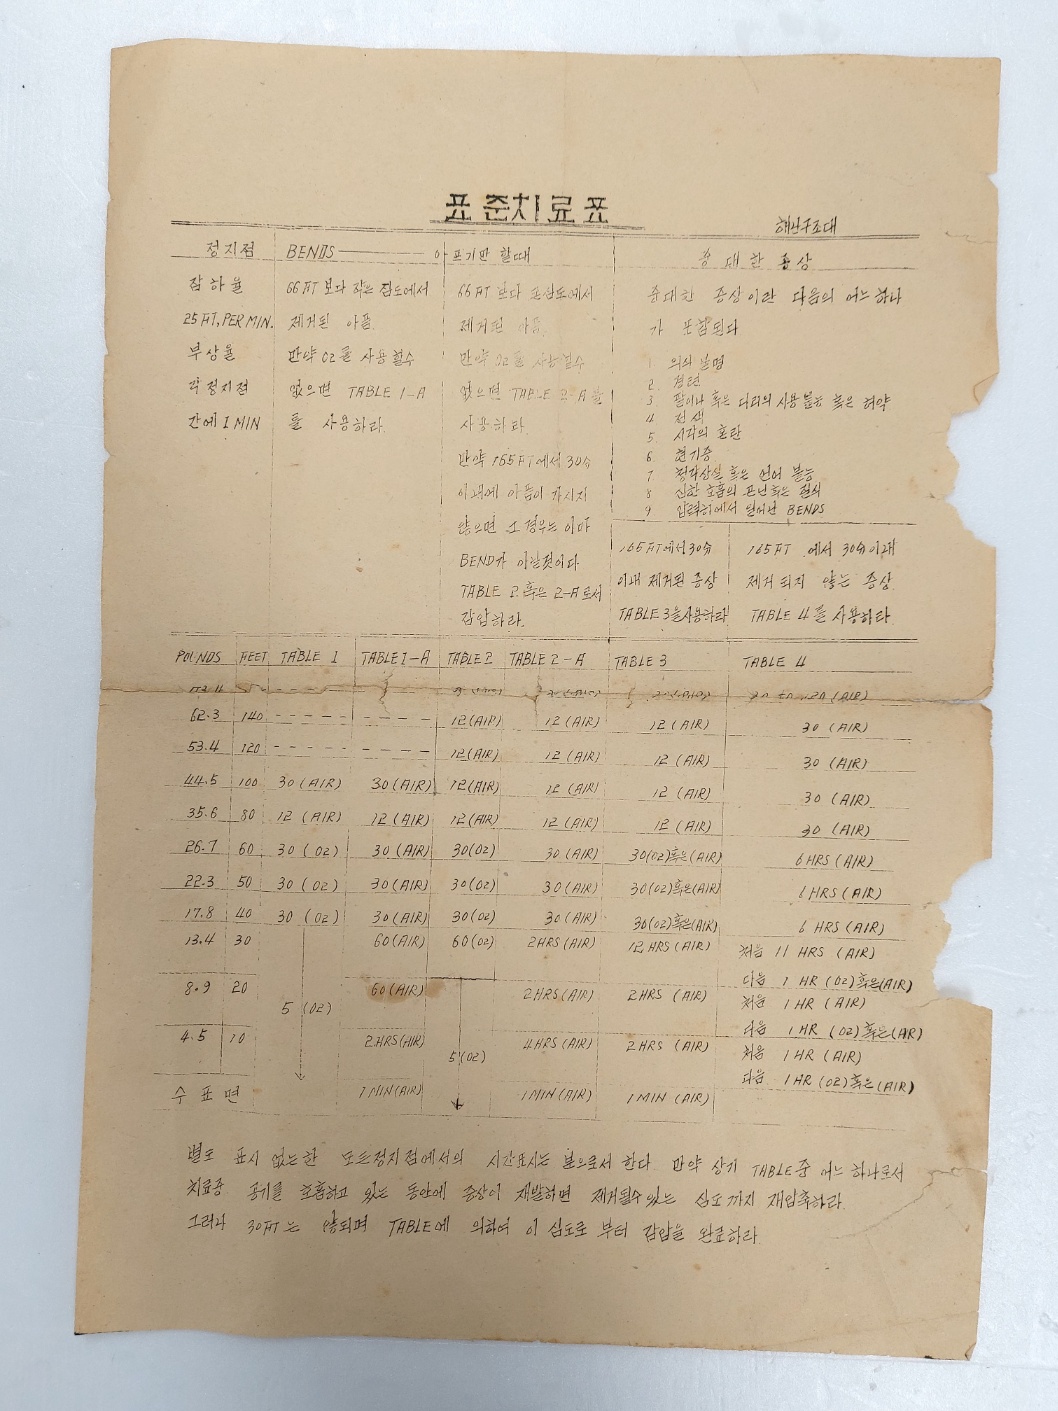 표준치료표
해난구조대
정지점 BENDS 아프기만 할때 중대한 증상
잠하율 66FT 보다 작은 심도에서 66FT 보다 큰심도에서 중대한 증상이란 다음의 어느 하나
25FT, PER MIN. 제거된 아픔 제거된 아픔 가 포함된다
부상율 만약 O2를 사용할수 만약 O2를 사용할수
각정지점 없으면 TABLE 1-A 없으면 TABLE 2-A를
간에 1 MIN 를 사용하라. 사용하라.
만약 165FT에서 30분
이내에 아픔이 가시지
않으면 그 경우는 이마
BEND가 아닐것이다
TABLE 2 혹은 2-A로서
감압하라.
1 의식불명
2 경련
3 팔이나 혹은 다리의 사용불능 혹은 허약
4 전색
5. 시각의 혼란
6. 현기증
7 청각상실 혹은 언어 불능
8 심한 호흡의 곤난혹은 질식
9 압력하에서 일어난 BENDS
165FT에서 30분 165FT 에서 30분이내
이내 제거된 증상 제거 되지 않는 증상
TABLE 3을 사용하라 TABLE 4를 사용하라
POUNDS FEET TABLE 1 TABLE 1-A TABLE 2 TABLE 2-A TABLE 3 TABLE 4
30 TO 120 (AIR)
62.3 140 ------ ------ 12(AIR) 12(AIR) 12(AIR) 30 (AIR)
53.4 120 ------ ------ 12(AIR) 12(AIR) 12(AIR) 30 (AIR)
44.5 100 30(AIR) 30(AIR) 12(AIR) 12(AIR) 12(AIR) 30 (AIR)
35.6 80 12 (AIR) 12(AIR) 12(AIR) 12(AIR) 12 (AIR) 30 (AIR)
26.7 60 30 (O2) 30 (AIR) 30(O2) 30 (AIR) 30(O2)혹은(AIR) 6HRS (AIR)
22.3 50 30 (O2) 30(AIR) 30(O2) 30(AIR) 30(O2)혹은(AIR) 6HRS (AIR)
17.8 40 30 (O2) 30(AIR) 30(O2) 30(AIR) 30(O2)혹은(AIR) 6 HRS (AIR)
13.4 30 60(AIR) 60(O2) 2HRS(AIR) 12HRS (AIR) 처음 11 HRS (AIR)
다음 1 HR (O2)혹은(AIR)
8.9 20 60(AIR) 2HRS(AIR) 2HRS (AIR) 처음 1HR (AIR)
5 (O2)
다음 1HR (O2)혹은(AIR)
4.5 10 2HRS(AIR) 5(O2) 4HRS(AIR) 2HRS (AIR) 처음 1HR (AIR)
다음 1HR (O2)혹은(AIR)
수표면 1MIN(AIR) 1MIN(AIR) 1MIN (AIR)
별도 표시 없는한 모든정지점에서의 시간표시는 분으로서 한다. 만약 상기 TABLE중 어느 하나로서
치료중 공기를 호흡하고 있는 동안에 증상이 재발하면 제거될수 있는 심도 까지 재압축하라.
그러나 30FT는 않되며 TABLE에 의하여 이 심도로 부터 감압을 완료하라.